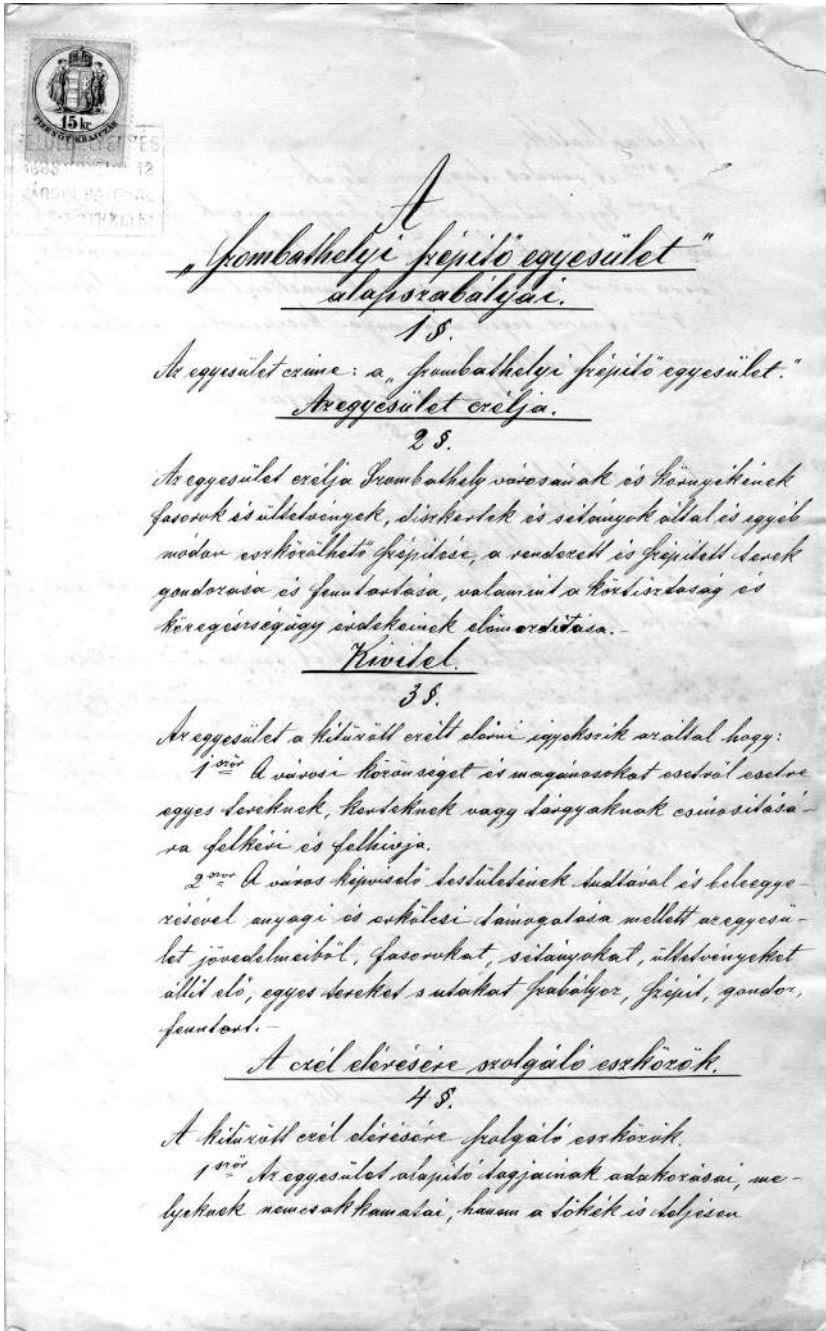 15 kr
TIZENÖT KRAJCZÁR
A
„Szombathelyi szépitő egyesület"
alapszabályai.
1 §.
Az egyesület czime: a „Szombathelyi szépitő egyesület."
Az egyesület czélja.
2 §.
Az egyesület czélja Szombathely városának és környékének
fasorok és ültetvények, diszkertek és sétányok által és egyéb
módon eszközölhető szépitése, a rendezett és szépitett terek
gondozása és fenntartása, valamint a köztisztaság és
közegészségügy érdekeinek előmozditása.-
Kivitel.
3 §.
Az egyesület a kitüzött czélt elérni igyekszik azáltal hogy:
1ször A városi közönséget és magánosokat esetről esetre
egyes tereknek, kerteknek vagy tárgyaknak csinositásá-
ra felkéri és felhivja.
2szor A város képviselő testületének tudtával és beleegye-
zésével anyagi és erkölcsi támogatása mellett az egyesü-
let jövedelmeiből, fasorokat, sétányokat, ültetvényeket
állit elő, egyes tereket s utakat szabályoz, szépit, gondoz,
fenntart.-
A czél elérésére szolgáló eszközök.
4 §.
A kitüzött czél elérésére szolgáló eszközök.
1ször Az egyesület alapitó tagjainak adakozásai, me-
lyeknek nemcsak kamatai, hanem a tőkék is teljesen